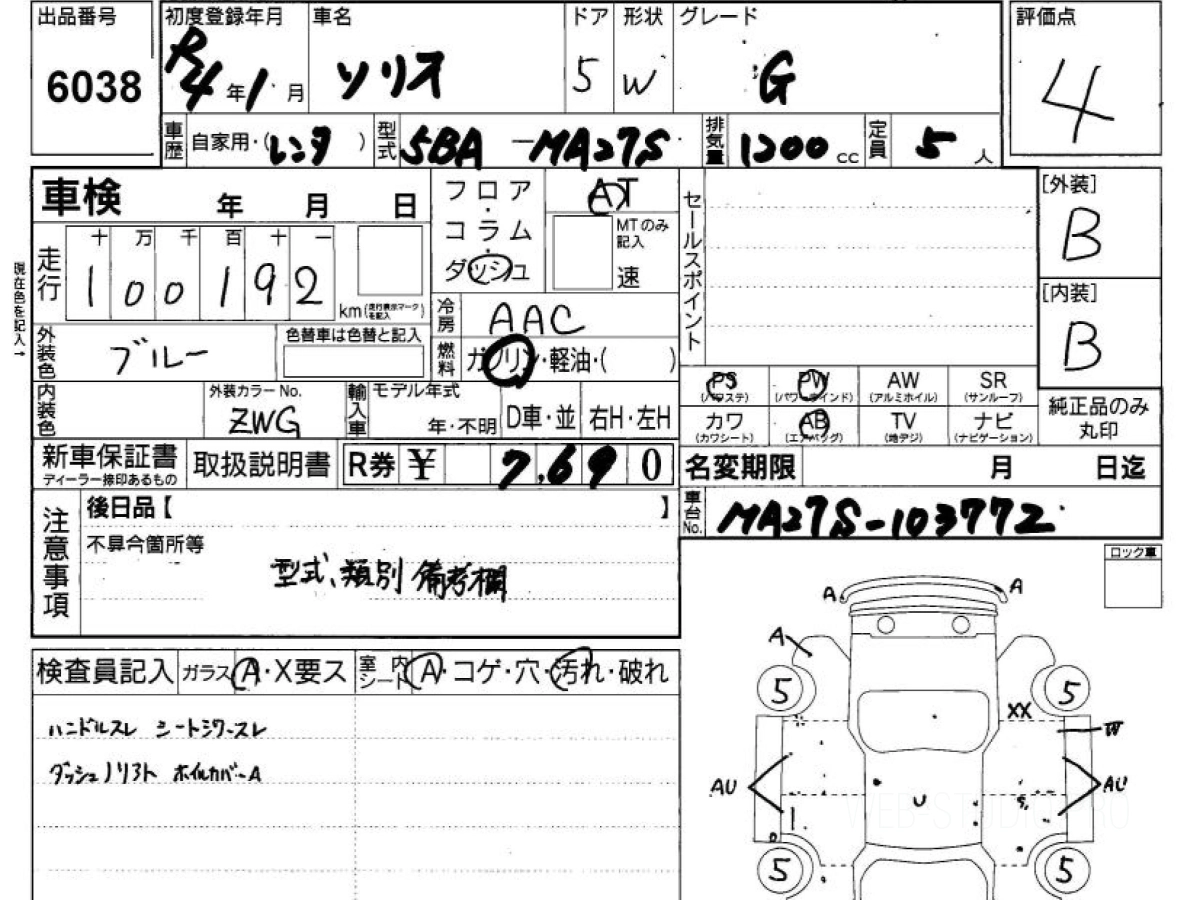 出品番号 初度登録年月 車名 ドア 形状 グレード 評価点
6038 R4年1月 ソリス 5 W G 4
車歴 自家用・(レンタ) 型式 5BA-MA27S 排気量 1200cc 定員 5人
車検 年 月 日
フロア・コラム・ダッシュ AT
MTのみ記入 速
セールスポイント
[外装]
B
[内装]
B
現在色を記入→
走行 十 万 千 百 十 一
100192 km(走行表示マークを記入)
冷房 AAC
外装色 ブルー 色替車は色替と記入
燃料 ガソリン・軽油・( )
内装色 外装カラーNo. ZWG 輸入車 モデル年式 年・不明 D車・並 右H・左H
PS(パワステ) PW(パワーウインド) AW(アルミホイル) SR(サンルーフ)
カワ(カワシート) AB(エアバッグ) TV(地デジ) ナビ(ナビゲーション)
純正品のみ丸印
新車保証書 ディーラー捺印あるもの 取扱説明書 R券 ¥ 7,690
名変期限 月 日迄
車台No. MA27S-103772
注意事項
後日品【 】
不具合箇所等
型式、類別 備考欄
ロック車
検査員記入 ガラス A・X要ス 室内シート A・コゲ・穴・汚れ・破れ
ハンドルスレ シートシワ-スレ
ダッシュノリアト ホイルカバーA
A A
A
5 5
XX
W
AU U AU
5 5
WEB-STUDIO PRO